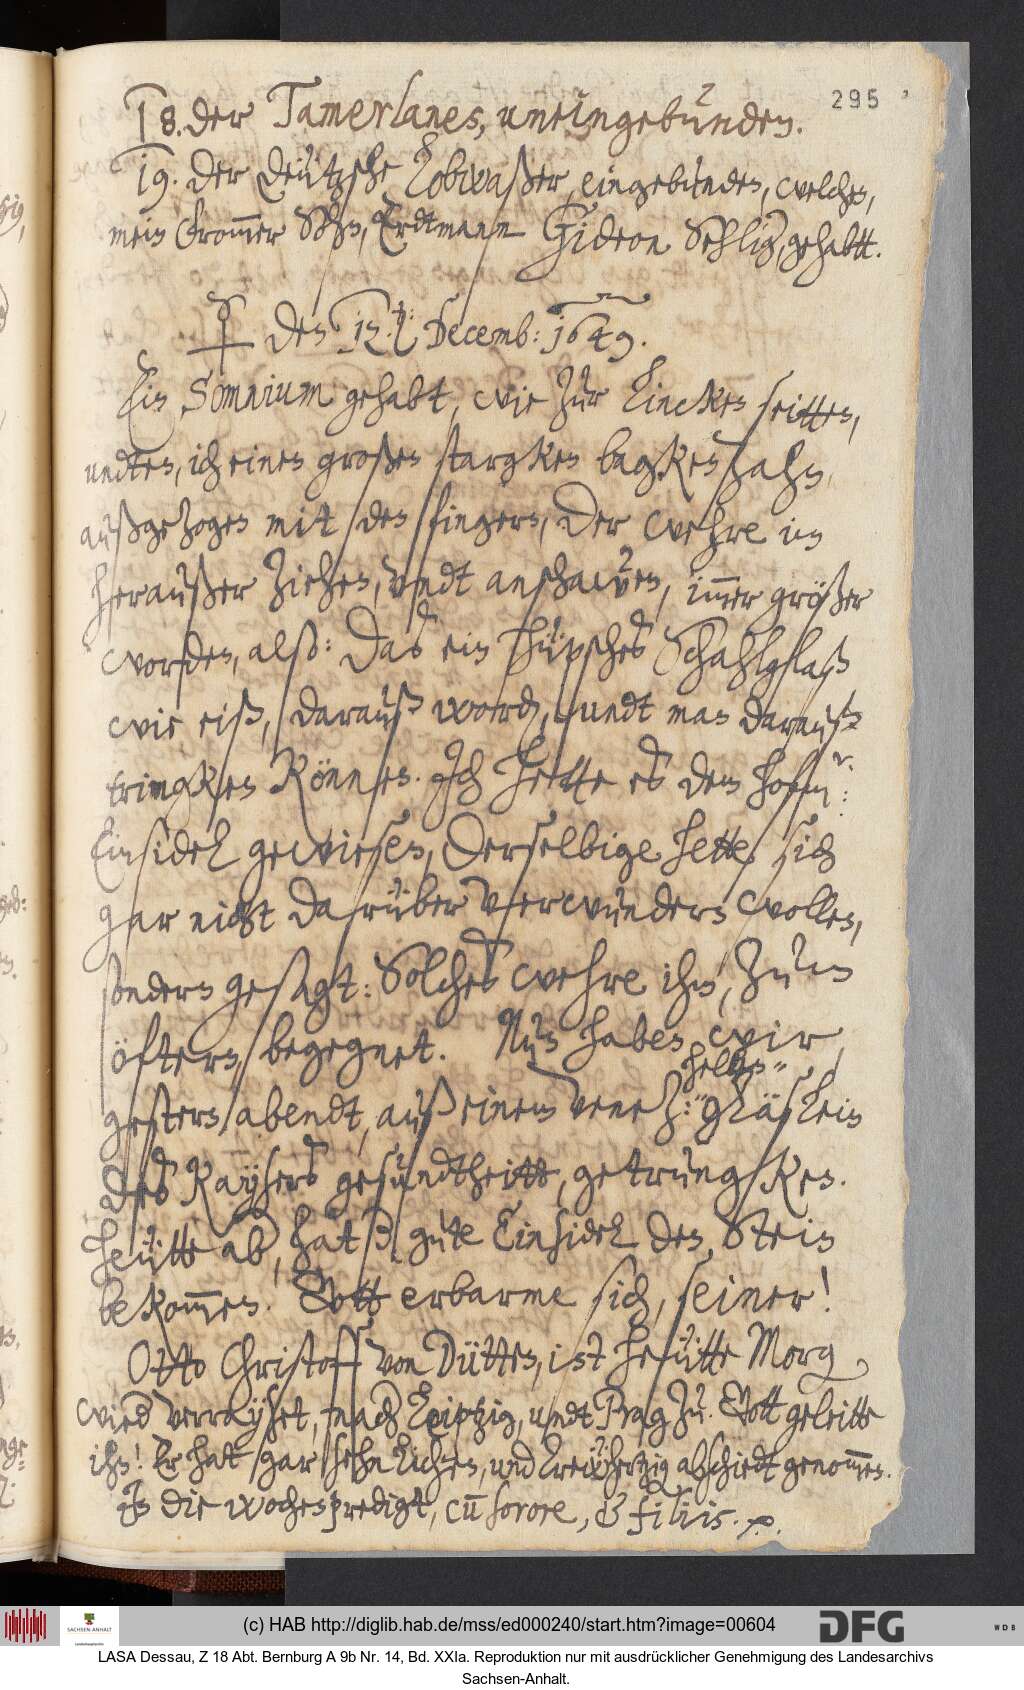 295
18. der Tamerlanes, uneingebunden.
19. der deützsche Lobwaßer, eingebunden, welchen,
mein frommer Sohn, Erdtmann Gideon Sehlig, gehabtt.
den 12. Decemb: 1649.
Ein Somnium gehabt, wie zur Lincken seitten,
undten, ich einen großen stargken bagkenzahn,
außgezogen mit den fingern, der wehre im
heraußer ziehen, undt anschawen, immer größer
worden, alß: das ein hüpsches Schahlglaß
wie eiß, darauß worden, undt man darauß
tringken können. Ich hette es dem hofm:r
Einsidel gewiesen, derselbige hette sich
gar nicht darüber verwundern wollen,
sondern gesagt: Solches wehre ihm, zum
öftern, begegnet. Nun haben wir
hellen
gestern abendt, auß einem venez: gläßlein
des Kaysers gesundtheitt, getrungken.
heütte ab, hat der gute Einsidel den Stein
bekommen. Gott erbarme sich, seiner!
Otto Christoff von Dütten, ist heütte Morg
wied verrayset, nach Leiptzig, undt Prag zu. Gott geleitte
ihn! Er hat gar sehnlichen, und trewhertzig abschiedt genommen.
In die wochenpredigt, cum sorore, & filiis.
(c) HAB http://diglib.hab.de/mss/ed000240/start.htm?image=00604
SACHSEN-ANHALT
DFG
WDB
LASA Dessau, Z 18 Abt. Bernburg A 9b Nr. 14, Bd. XXIa. Reproduktion nur mit ausdrücklicher Genehmigung des Landesarchivs
Sachsen-Anhalt.